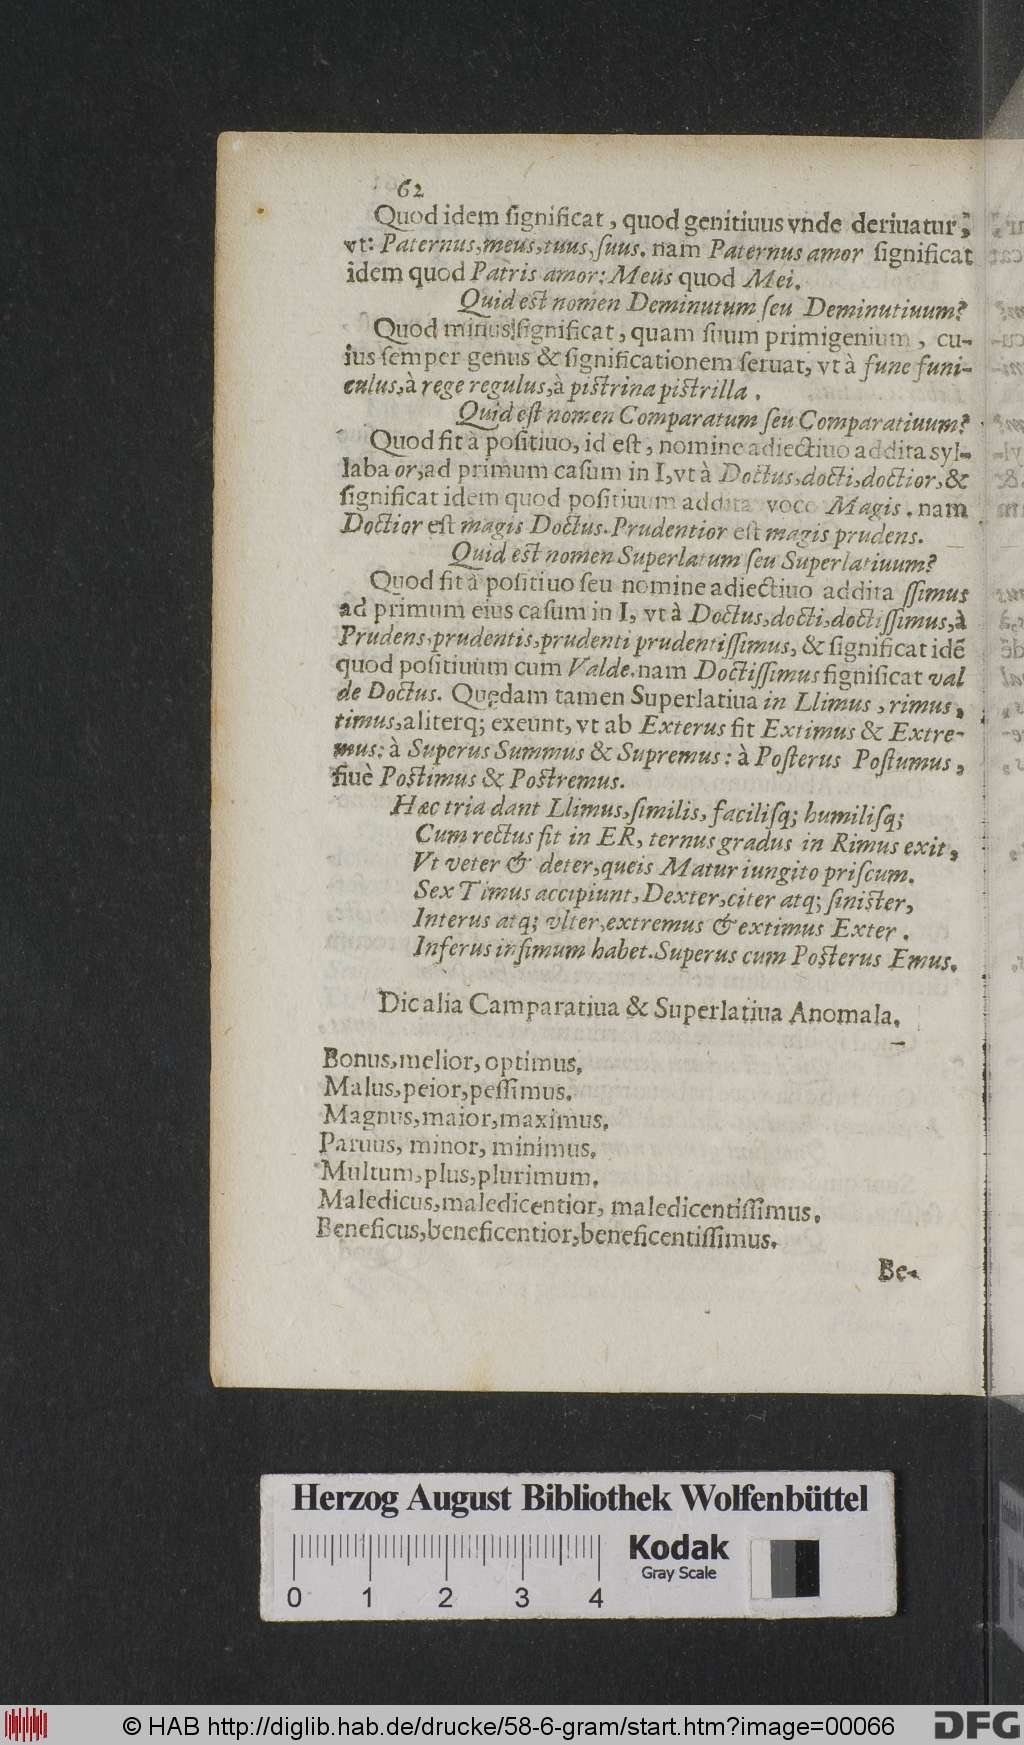 62
Quod idem ſignificat, quod genitiuus vnde deriuatur,
vt: Paternus, meus, tuus, ſuus. nam Paternus amor ſignificat
idem quod Patris amor: Meus quod Mei.
Quid est nomen Deminutum ſeu Deminutiuum?
Quod minus ſignificat, quam ſuum primigenium, cu-
ius ſemper genus & ſignificationem ſeruat, vt à fune funi-
culus, à rege regulus, à pistrina pistrilla.
Quid eſt nomen Comparatum ſeu Comparatiuum?
Quod fit à poſitiuo, id eſt, nomine adiectiuo addita syl-
laba or, ad primum caſum in I, vt à Doctus, docti, doctior, &
ſignificat idem quod poſitiuum addita voce Magis. nam
Doctior eſt magis Doctus. Prudentior eſt magis prudens.
Quid est nomen Superlatum ſeu Superlatiuum?
Quod fit à poſitiuo ſeu nomine adiectiuo addita ſſimus
ad primum eius caſum in I, vt à Doctus, docti, doctiſſimus, à
Prudens, prudentis, prudenti prudentiſſimus, & ſignificat idē
quod poſitiuum cum Valde. nam Doctiſſimus ſignificat val
de Doctus. Quędam tamen Superlatiua in Llimus, rimus,
timus, aliterq; exeunt, vt ab Exterus fit Extimus & Extre-
mus: à Superus Summus & Supremus: à Poſterus Poſtumus,
ſiuè Poſtimus & Poſtremus.
Hæc tria dant Llimus, ſimilis, facilisq; humilisq;
Cum rectus fit in ER, ternus gradus in Rimus exit,
Vt veter & deter, queis Matur iungito priſcum.
Sex Timus accipiunt, Dexter, citer atq; ſinister,
Interus atq; vlter, extremus & extimus Exter.
Inferus infimum habet. Superus cum Poſterus Emus.
Dic alia Camparatiua & Superlatiua Anomala.
Bonus, melior, optimus.
Malus, peior, peſſimus.
Magnus, maior, maximus.
Paruus, minor, minimus.
Multum, plus, plurimum.
Maledicus, maledicentior, maledicentiſſimus.
Beneficus, beneficentior, beneficentiſſimus.
Be-
Herzog August Bibliothek Wolfenbüttel
Kodak
Gray Scale
0 1 2 3 4
© HAB http://diglib.hab.de/drucke/58-6-gram/start.htm?image=00066
DFG